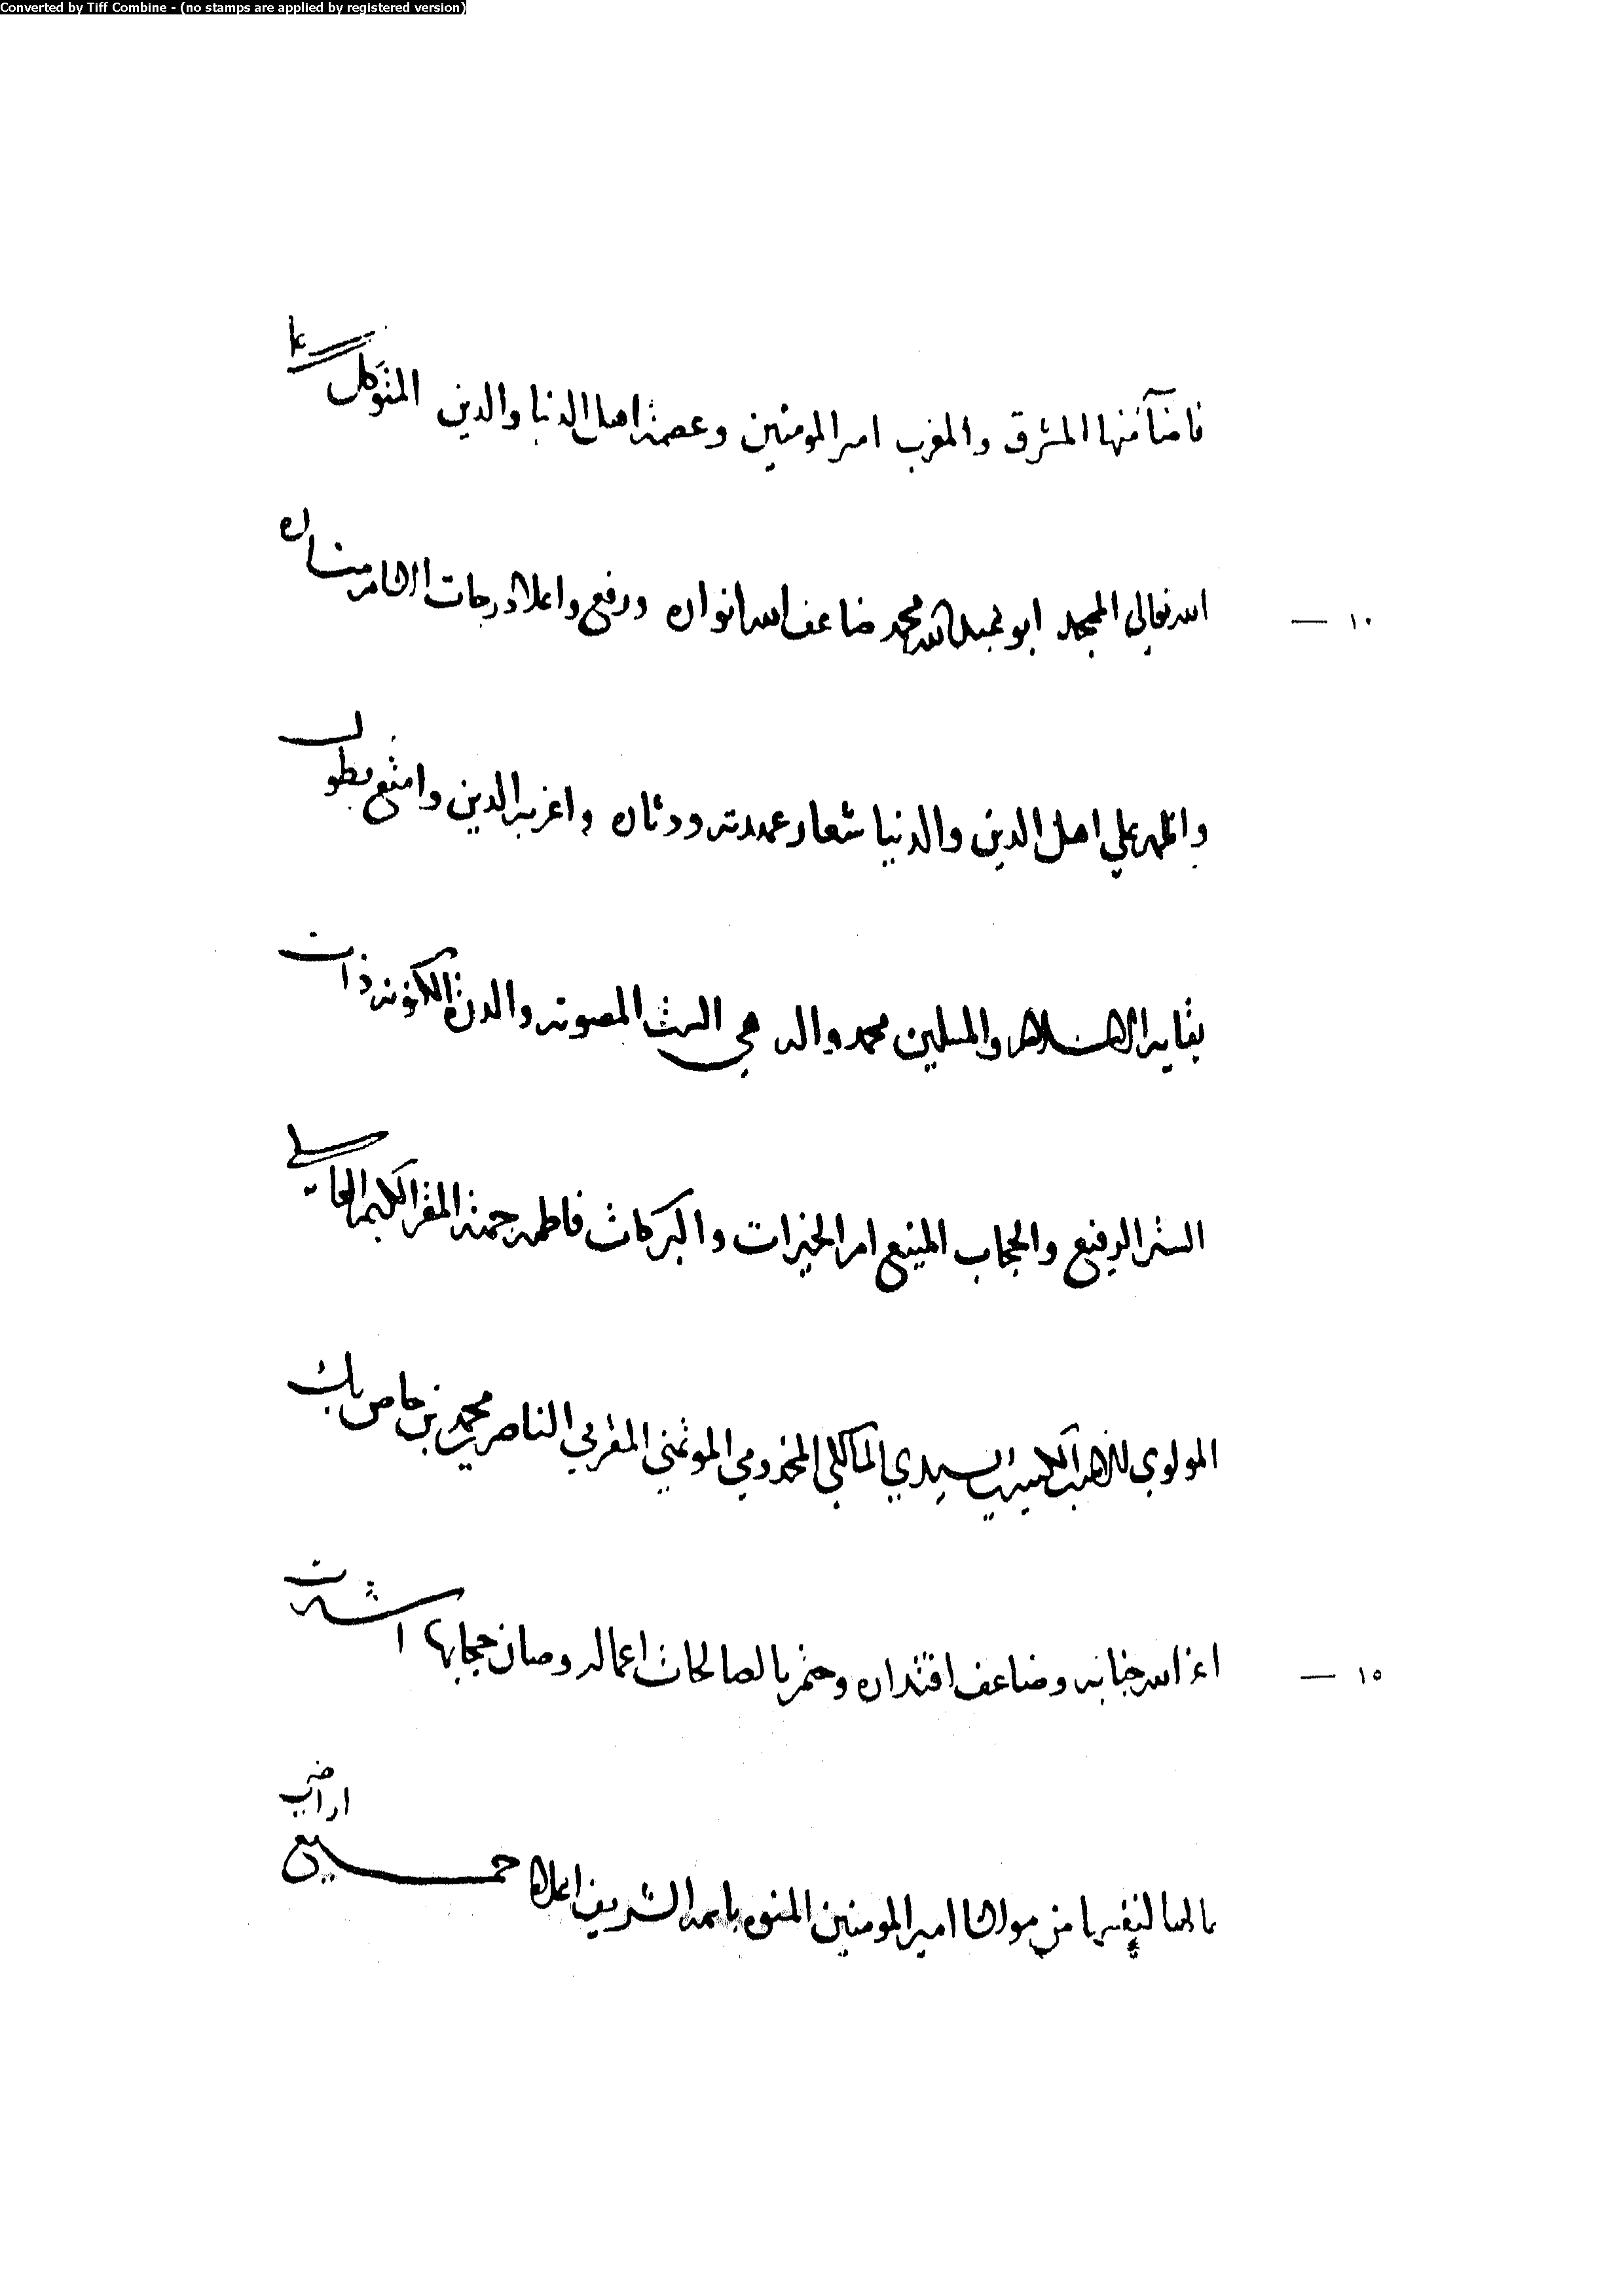 Converted by Tiff Combine - (no stamps are applied by registered version)
المشرق والمغرب امير المومنين وعصمة اهل الدنيا والدين المتوكل على
١٠ — الله تعالى الممجد ابو عبد الله محمد ضاعف الله انواره ورفع واعلا درجات الاسلام مناره
واظهر على اهل الدين والدنيا شعار عهدته ودثاره واعز به الدين وامتع بطول
بقايه الاسلام والمسلمين بمحمد واله هي الست المصونة والدرة المكنونه ذات
الستر الرفيع والحجاب المنيع ام الخيرات والبركات فاطمه جهة المقر الكريم العالي
المولوي الاميري الكبيري السيدي المالكي المخدومي الموتمني المقربي الناصري محمد بن خاص بك
١٥ — اعز الله جنابه وضاعف اقتداره وختم بالصالحات اعماله وصان حجابها اشترت
بمالها لنفسها من مولانا امير المومنين المنوه باسمه الشريف اعلاه جميع
اراضي